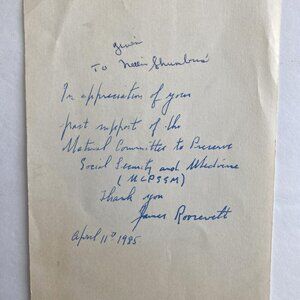 given
To Nellie
In appreciation of your
past support of the
National Committee to Preserve
Social Security and Medicine
(NCPSSM)
Thank you
James Roosevelt
April 11th 1985